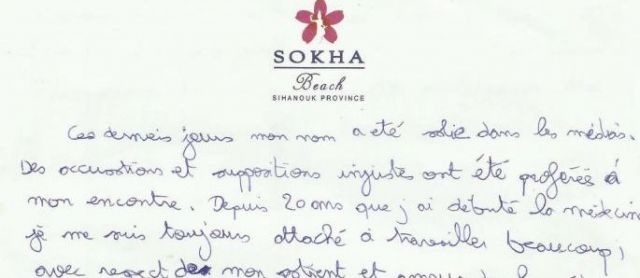 SOKHA
Beach
SIHANOUK PROVINCE
Ces derniers jours mon nom a été dans les médias.
Des accusations et suppositions injustes ont été proférés à
mon encontre. Depuis 20 ans que j'ai débuté la médecine
je me suis toujours attaché à travailler beaucoup,
avec respect de mon patient et